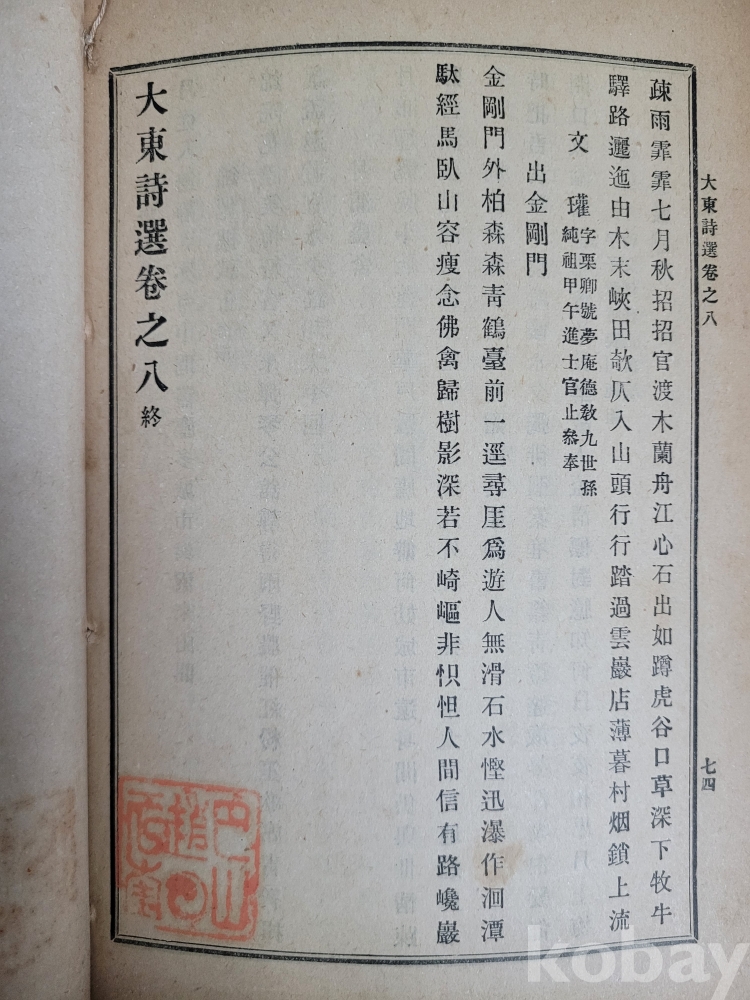 大東詩選卷之八
七四
疎雨霏霏七月秋招招官渡木蘭舟江心石出如蹲虎谷口草深下牧牛
驛路邐迤由木末峽田欹仄入山頭行行踏過雲巖店薄暮村烟鎖上流
文 瓘 字栗卿號夢庵德敎九世孫
純祖甲午進士官止叅奉
出金剛門
金剛門外柏森森靑鶴臺前一逕尋厓爲遊人無滑石水慳迅瀑作洄潭
馱經馬臥山容瘦念佛禽歸樹影深若不崎嶇非怾怛人間信有路巉巖
大東詩選卷之八 終
kobay